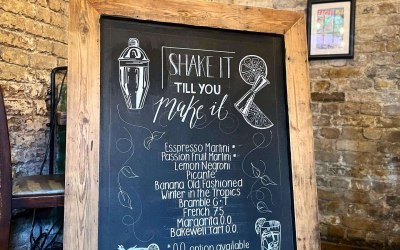 SHAKE IT
TILL YOU
Make it
Esspresso Martini *
Passion Fruit Martini *
Lemon Negroni
Picante
Banana Old Fashioned
Winter in the Tropics
Bramble G+T
French 75
Margarita 0.0.
Bakewell Tart 0.0.
* 0.0 option available